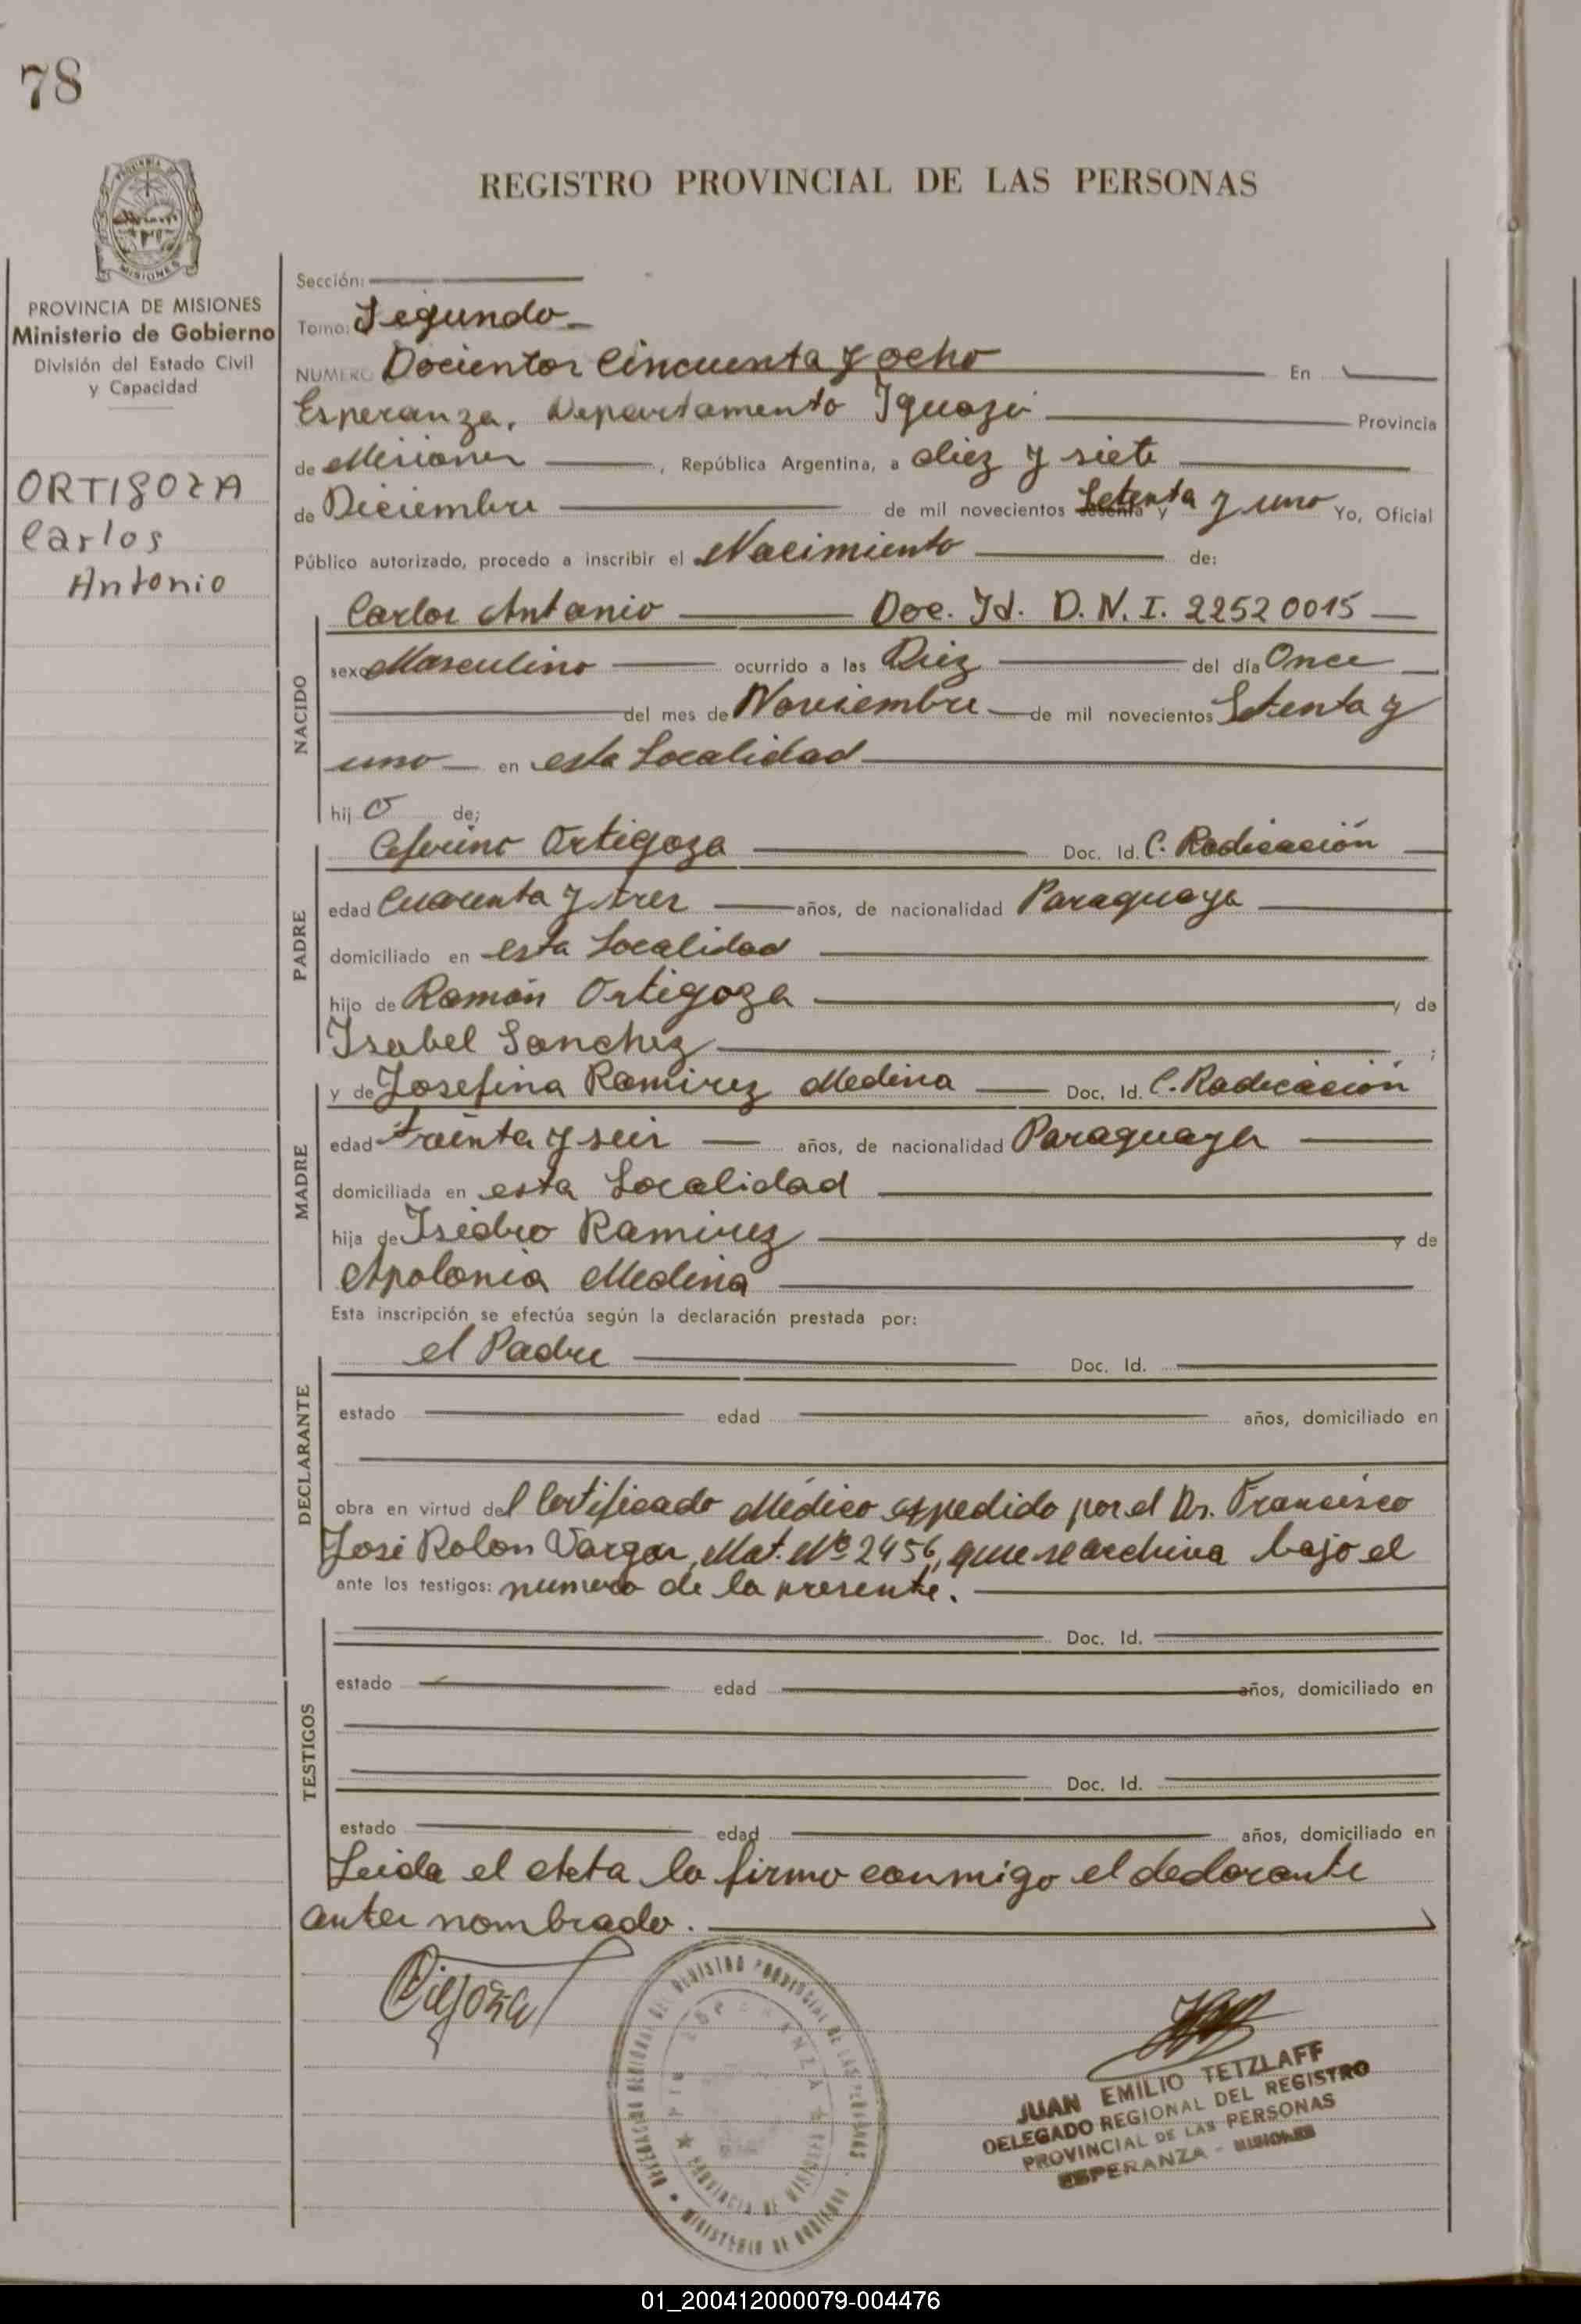 78
PROVINCIA DE MISIONES
Ministerio de Gobierno
División del Estado Civil
y Capacidad
ORTIGOZA
Carlos
Antonio
REGISTRO PROVINCIAL DE LAS PERSONAS
Sección:
Tomo: Segundo
NUMERO Docientos Cincuenta y ocho En
Esperanza, Departamento Iguazú Provincia
de Misiones, República Argentina, a diez y siete
de Diciembre de mil novecientos sesenta y Setenta y uno Yo, Oficial
Público autorizado, procedo a inscribir el Nacimiento de:
NACIDO
Carlos Antonio Doc. Id. D.N.I. 22520015
sexo Masculino ocurrido a las Diez del día Once
del mes de Noviembre de mil novecientos Setenta y
uno en esta Localidad
hij o de;
PADRE
Ceferino Ortigoza Doc. Id. C. Radicación
edad Cuarenta y tres años, de nacionalidad Paraguaya
domiciliado en esta Localidad
hijo de Ramón Ortigoza y de
Isabel Sanchez ;
MADRE
y de Josefina Ramirez Medina Doc. Id. C. Radicación
edad treinta y seis años, de nacionalidad Paraguaya
domiciliada en esta Localidad
hija de Isidro Ramirez y de
Apolonia Medina
Esta inscripción se efectúa según la declaración prestada por:
DECLARANTE
el Padre Doc. Id.
estado edad años, domiciliado en
obra en virtud del Certificado Médico expedido por el Dr. Francisco
José Rolon Vargas, Mat. Nº 2456, que se archiva bajo el
ante los testigos: numero de la presente.
TESTIGOS
Doc. Id.
estado edad años, domiciliado en
Doc. Id.
estado edad años, domiciliado en
Leida el Acta la firmo conmigo el declarante
antes nombrado.
Ortigoza
DELEGACION REGIONAL DEL REGISTRO PROVINCIAL DE LAS PERSONAS
MINISTERIO DE GOBIERNO
ESPERANZA
PROVINCIA DE MISIONES
JUAN EMILIO TETZLAFF
DELEGADO REGIONAL DEL REGISTRO
PROVINCIAL DE LAS PERSONAS
ESPERANZA - MISIONES
01_200412000079-004476